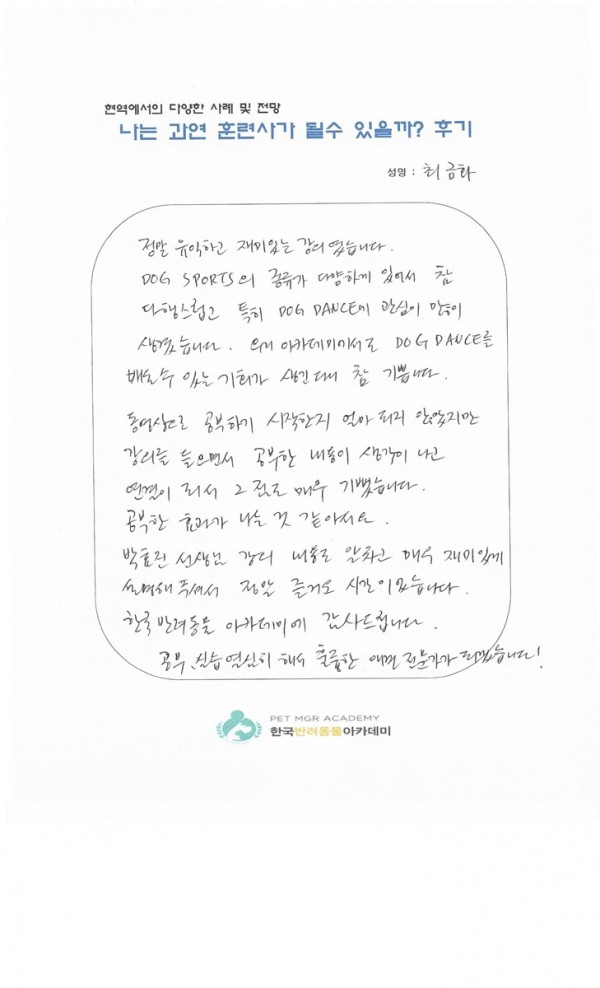 현역에서의 다양한 사례 및 전망
나는 과연 훈련사가 될수 있을까? 후기
성명 : 최금화
정말 유익하고 재미있는 강의 였습니다.
DOG SPORTS의 종류가 다양하게 있어서 참
다행스럽고 특히 DOG DANCE에 관심이 많이
생겼습니다. 우리 아카데미에서도 DOG DANCE를
배울수 있는 기회가 생긴다니 참 기쁩니다.
동영상으로 공부하기 시작한지 얼마 되지 않았지만
강의를 들으면서 공부한 내용이 생각이 나고
연결이 되서 그 점도 매우 기뻤습니다.
공부한 효과가 나는 것 같아서요.
박효진 선생님 강의 내용도 알차고 매우 재미있게
설명해 주셔서 정말 즐거운 시간이었습니다.
한국 반려동물 아카데미에 감사드립니다.
공부, 실습 열심히 해서 훌륭한 애견 전문가가 되겠습니다!
PET MGR ACADEMY
한국반려동물아카데미